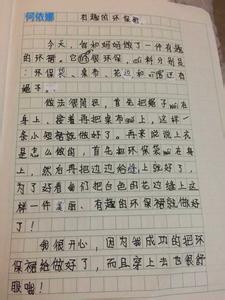 何依娜
有趣的环保裙
今天，我和妈妈做了一件有趣
的环裙。它的很环保，材料分别是
：环保袋、桌布、花边和
绳子。
做法很简单，首先把绳子wéi在
身上，接着再把桌布wéi上，这样一
条小短裙就做好了。再来说说上衣
是怎么做的，首先把环保袋wéi在身
上，然后再把边边给缝上就好了，
为了好看我们把白色的花边缝上这
样一件美丽、有趣的环保裙就做好
了！
我很开心，因为我成功的把环
保裙给做好了，而且穿上去也很舒
服哦！